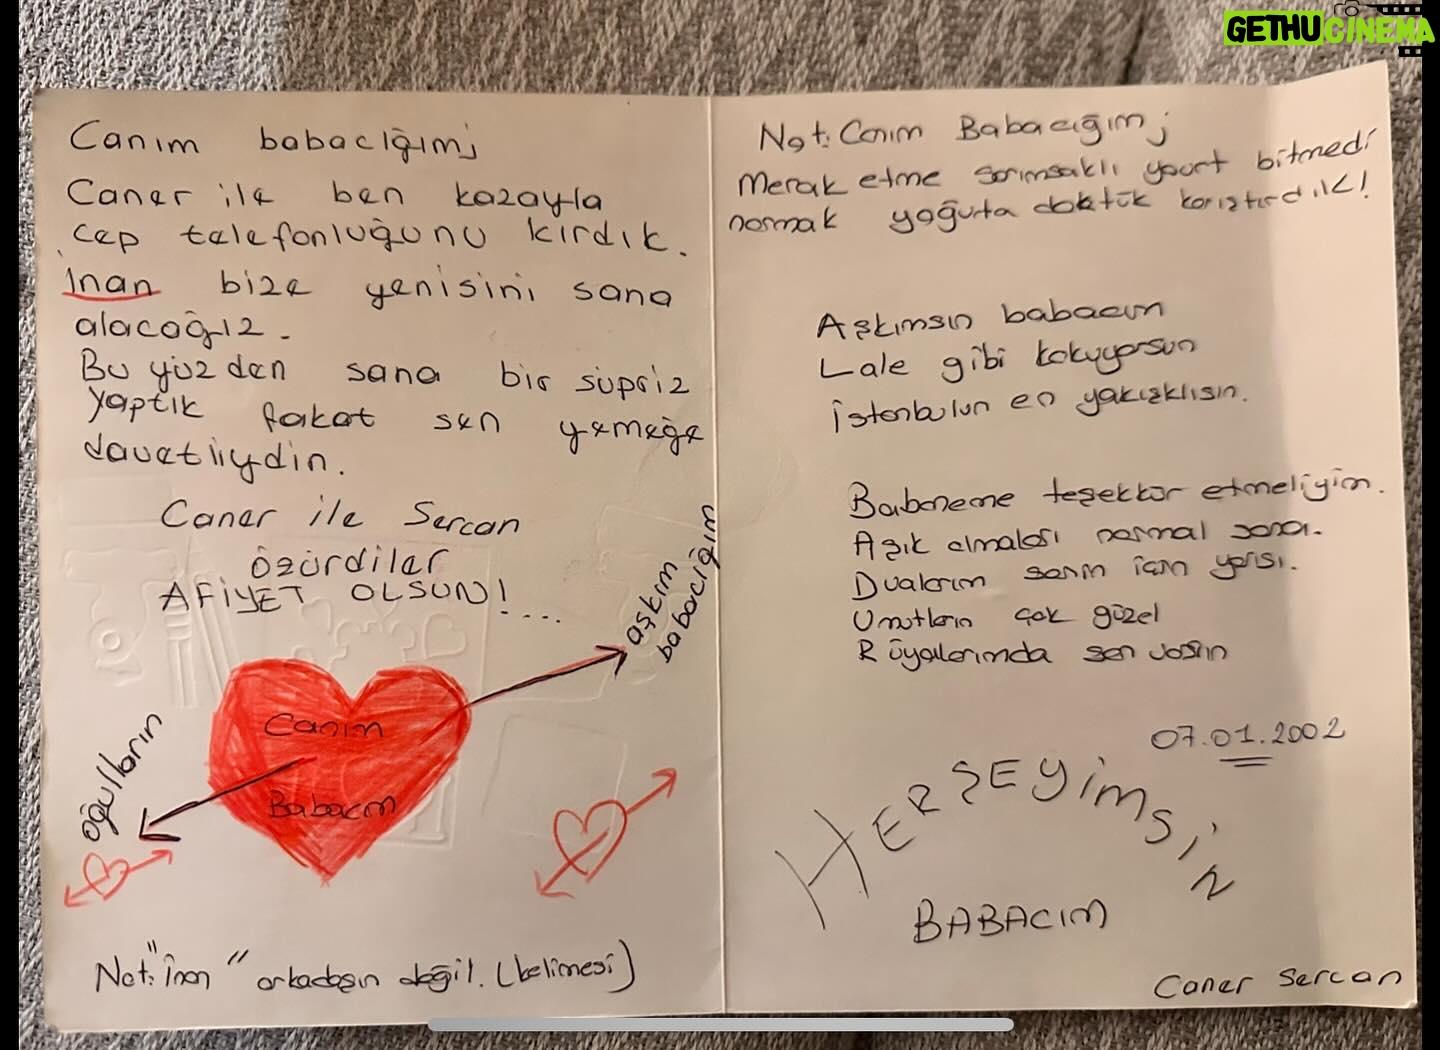 GETHUCINEMA
Canım babacığım;
Caner ile ben kazayla
cep telefonluğunu kırdık.
İnan bize yenisini sana
alacağız.
Bu yüzden sana bir süpriz
yaptık fakat sen yemeğe
davetliydin.
Caner ile Sercan
özürdiler
AFİYET OLSUN!....
aşkım
babacığım
Canım
Babacım
oğulların
Not: "İnan" arkadaşın değil. (kelimesi)
Not: Canım Babacığım;
Merak etme sarımsaklı yourt bitmedi
normak yoğurta döktük karıştırdık!
Aşkımsın babacım
Lale gibi kokuyorsun
İstanbulun en yakışıklısın.
Babaneme teşekkür etmeliyim.
Aşık olmaları normal sana.
Dualarım senin için yarısı.
Umutların çok güzel
Rüyalarımda sen varsın
07.01.2002
HERŞEYİMSİN
BABACIM
Caner Sercan